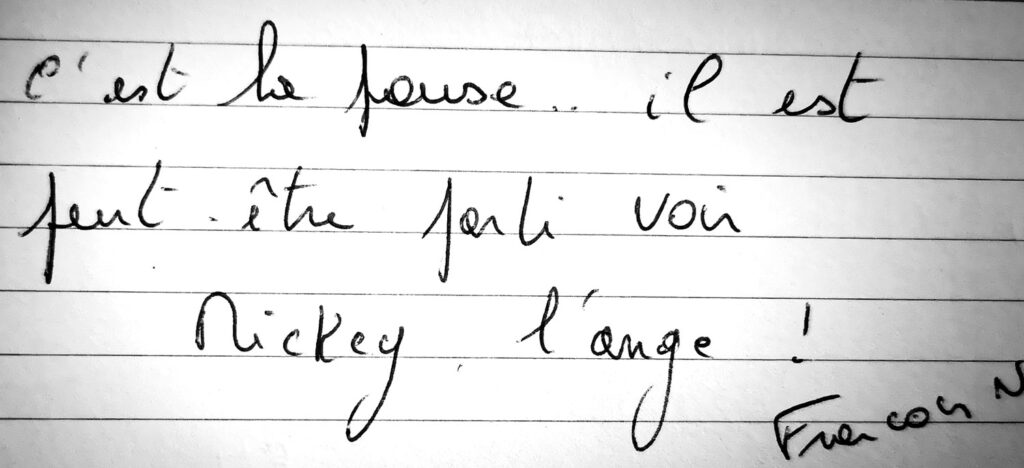 c'est la pause.. il est
peut-être parti voir
Mickey l'ange !